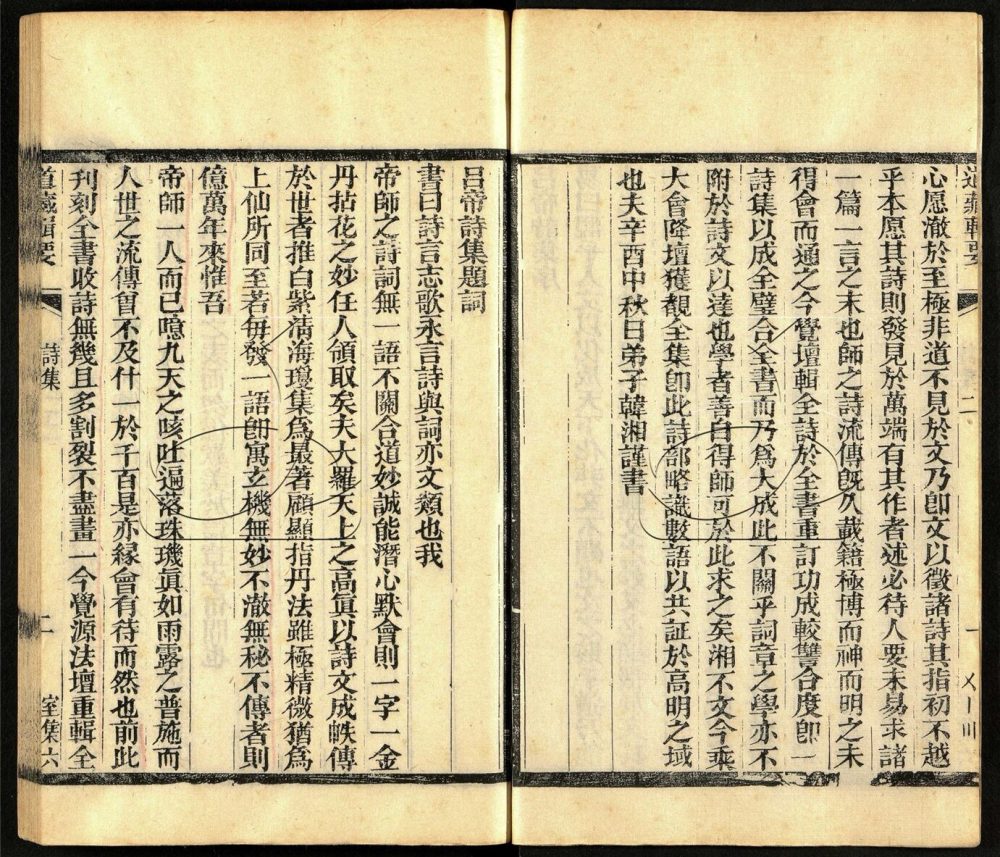 道藏輯要
二
心愿澈於至極非道不見於文乃卽文以徵諸詩其指初不越
乎本愿其詩則發見於萬端有其作者述必待人要未易求諸
一篇一言之末也師之詩流傳旣久載籍極博而神而明之未
得會而通之今覺壇輯全詩於全書重訂功成較讐合度卽一
詩集以成全璧合全書而乃爲大成此不關乎詞章之學亦不
附於詩文以達也學者善自得師可於此求之矣湘不文今乘
大會降壇獲覩全集卽此詩部略識數語以共証於高明之域
也夫辛酉中秋日弟子韓湘謹書
呂帝詩集題詞
書曰詩言志歌永言詩與詞亦文類也我
帝師之詩詞無一語不關合道妙誠能潛心默會則一字一金
丹拈花之妙任人領取矣夫大羅天上之高眞以詩文成帙傳
於世者推白紫淸海瓊集爲最著顧顯指丹法雖極精微猶爲
上仙所同至若每發一語卽寓玄機無妙不澈無秘不傳者則
億萬年來惟吾
帝師一人而已噫九天之咳吐遍落珠璣眞如雨露之普施而
人世之流傳曾不及什一於千百是亦緣會有待而然也前此
刊刻全書收詩無幾且多割裂不盡畫一今覺源法壇重輯全
道藏輯要
詩集
二
室集六